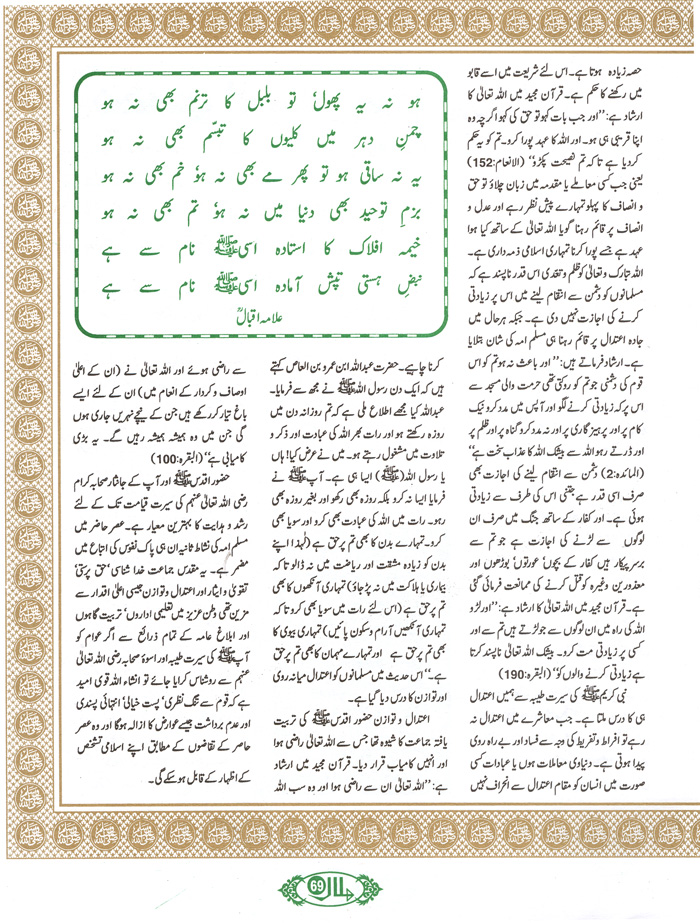 حصہ زیادہ ہوتا ہے۔ اس لئے شریعت میں اسے قابو
میں رکھنے کا حکم ہے۔ قرآن مجید میں اللہ تعالیٰ کا
ارشاد ہے: ’’اور جب بات کہو تو حق کی کہو اگرچہ وہ
اپنا قریبی ہی ہو۔ اور اللہ کا عہد پورا کرو۔ تم کو یہ حکم
کر دیا ہے تاکہ تم نصیحت پکڑو‘‘ (الانعام:152)
یعنی جب کسی معاملے یا مقدمہ میں زبان چلاؤ تو حق
و انصاف کا پہلو تمہارے پیش نظر رہے اور عدل و
انصاف پر قائم رہنا گویا اللہ تعالیٰ کے ساتھ کیا ہوا
عہد ہے جسے پورا کرنا تمہاری اسلامی ذمہ داری ہے۔
اللہ تبارک وتعالیٰ کو ظلم و تعدی اس قدر ناپسند ہے کہ
مسلمانوں کو دشمن سے انتقام لینے میں اس پر زیادتی
کرنے کی اجازت نہیں دی ہے۔ جبکہ ہر حال میں
جادہ اعتدال پر قائم رہنا ہی مسلم امہ کی شان بتلایا
ہے۔ ارشاد فرماتے ہیں: ’’اور باعث نہ ہو تم کو اس
قوم کی دشمنی جو تم کو روکتی تھی حرمت والی مسجد سے
اس پر کہ زیادتی کرنے لگو اور آپس میں مدد کرو نیک
کام پر اور پرہیزگاری پر اور نہ مدد کرو گناہ پر اور ظلم پر
اور ڈرتے رہو اللہ سے بیشک اللہ کا عذاب سخت ہے‘‘
(المائدہ:2) دشمن سے انتقام لینے کی اجازت بھی
صرف اسی قدر ہے جتنی اس کی طرف سے زیادتی
ہوئی ہے۔ اور کفار کے ساتھ جنگ میں صرف ان
لوگوں سے لڑنے کی اجازت ہے جو تم سے
برسرپیکار ہیں کفار کے بچوں‘ عورتوں‘ بوڑھوں اور
معذورین وغیرہ کو قتل کرنے کی ممانعت فرمائی گئی
ہے۔ قرآن مجید میں اللہ تعالیٰ کا ارشاد ہے: ’’اور لڑو
اللہ کی راہ میں ان لوگوں سے جو لڑتے ہیں تم سے اور
کسی پر زیادتی مت کرو۔ بیشک اللہ تعالیٰ ناپسند کرتا
ہے زیادتی کرنے والوں کو‘‘ (البقرہ:190)
نبی کریم ﷺ کی سیرت طیبہ سے ہمیں اعتدال
ہی کا درس ملتا ہے۔ جب معاشرے میں اعتدال نہ
رہے تو افراط و تفریط کی وجہ سے فساد اور بے راہ روی
پیدا ہوتی ہے۔ دنیاوی معاملات ہوں یا عبادات کسی
صورت میں انسان کو مقام اعتدال سے انحراف نہیں
ہو نہ یہ پھول‘ تو بلبل کا ترنم بھی نہ ہو
چمنِ دہر میں کلیوں کا تبسّم بھی نہ ہو
یہ نہ ساقی ہو تو پھر مے بھی نہ ہو‘ خم بھی نہ ہو
بزمِ توحید بھی دنیا میں نہ ہو‘ تم بھی نہ ہو
خیمہ افلاک کا استادہ اسی ﷺ نام سے ہے
نبضِ ہستی تپش آمادہ اسی ﷺ نام سے ہے
علامہ اقبالؒ
کرنا چاہیے۔ حضرت عبداللہ ابن عمرو بن العاص کہتے
ہیں کہ ایک دن رسول اللہ ﷺ نے مجھ سے فرمایا۔
عبداللہ کیا مجھے اطلاع ملی ہے کہ تم روزانہ دن میں
روزہ رکھتے ہو اور رات بھر اللہ کی عبادت اور ذکر و
تلاوت میں مشغول رہتے ہو۔ میں نے عرض کیا! ہاں
یا رسول اللہ (ﷺ) ایسا ہی ہے۔ آپ ﷺ نے
فرمایا ایسا نہ کرو بلکہ روزہ بھی رکھو اور بغیر روزہ بھی
رہو۔ رات میں اللہ کی عبادت بھی کرو اور سویا بھی
کرو۔ تمہارے بدن کا بھی تم پر حق ہے (لہٰذا اپنے
بدن کو زیادہ مشقت اور ریاضت میں نہ ڈالو تاکہ
بیماری یا ہلاکت میں نہ پڑ جاؤ) تمہاری آنکھوں کا بھی
تم پر حق ہے (اس لئے رات میں سویا بھی کرو تاکہ
تمہاری آنکھیں آرام و سکون پائیں) تمہاری بیوی کا
بھی تم پر حق ہے اور تمہارے مہمان کا بھی تم پر حق
ہے۔‘‘ اس حدیث میں مسلمانوں کو اعتدال‘ میانہ روی
اور توازن کا درس دیا گیا ہے۔
اعتدال و توازن حضور اقدس ﷺ کی تربیت
یافتہ جماعت کا شیوہ تھا جس سے اللہ تعالیٰ راضی ہوا
اور انہیں کامیاب قرار دیا۔ قرآن مجید میں ارشاد
ہے: ’’اللہ تعالیٰ ان سے راضی ہوا اور وہ سب اللہ
سے راضی ہوئے اور اللہ تعالیٰ نے (ان کے اعلیٰ
اوصاف و کردار کے انعام میں) ان کے لئے ایسے
باغ تیار کر رکھے ہیں جن کے نیچے نہریں جاری ہوں
گی جن میں وہ ہمیشہ ہمیشہ رہیں گے۔ یہ بڑی
کامیابی ہے‘‘ (البقرہ:100)
حضور اقدس ﷺ اور آپ کے جانثار صحابہ کرام
رضی اللہ تعالیٰ عنہم کی سیرت قیامت تک کے لئے
رشد و ہدایت کا بہترین معیار ہے۔ عصر حاضر میں
مسلم امہ کی نشاط ثانیہ ان ہی پاک نفوس کی اتباع میں
مضمر ہے۔ یہ مقدس جماعت خدا شناسی‘ حق پرستی‘
تقویٰ و ایثار اور اعتدال و توازن جیسی اعلیٰ اقدار سے
مزین تھی وطن عزیز میں تعلیمی اداروں‘ تربیت گاہوں
اور ابلاغ عامہ کے تمام ذرائع سے اگر عوام کو
آپ ﷺ کی سیرت طیبہ اور اسوۂ صحابہ رضی اللہ تعالیٰ
عنہم سے روشناس کرایا جائے تو انشاء اللہ قوی امید
ہے کہ قوم سے تنگ نظری‘ پست خیالی‘ انتہائی پسندی
اور عدم برداشت جیسے عوارض کا ازالہ ہوگا اور وہ عصر
حاضر کے تقاضوں کے مطابق اپنے اسلامی تشخص
کے اظہار کے قابل ہو سکے گی۔
ہلال 69